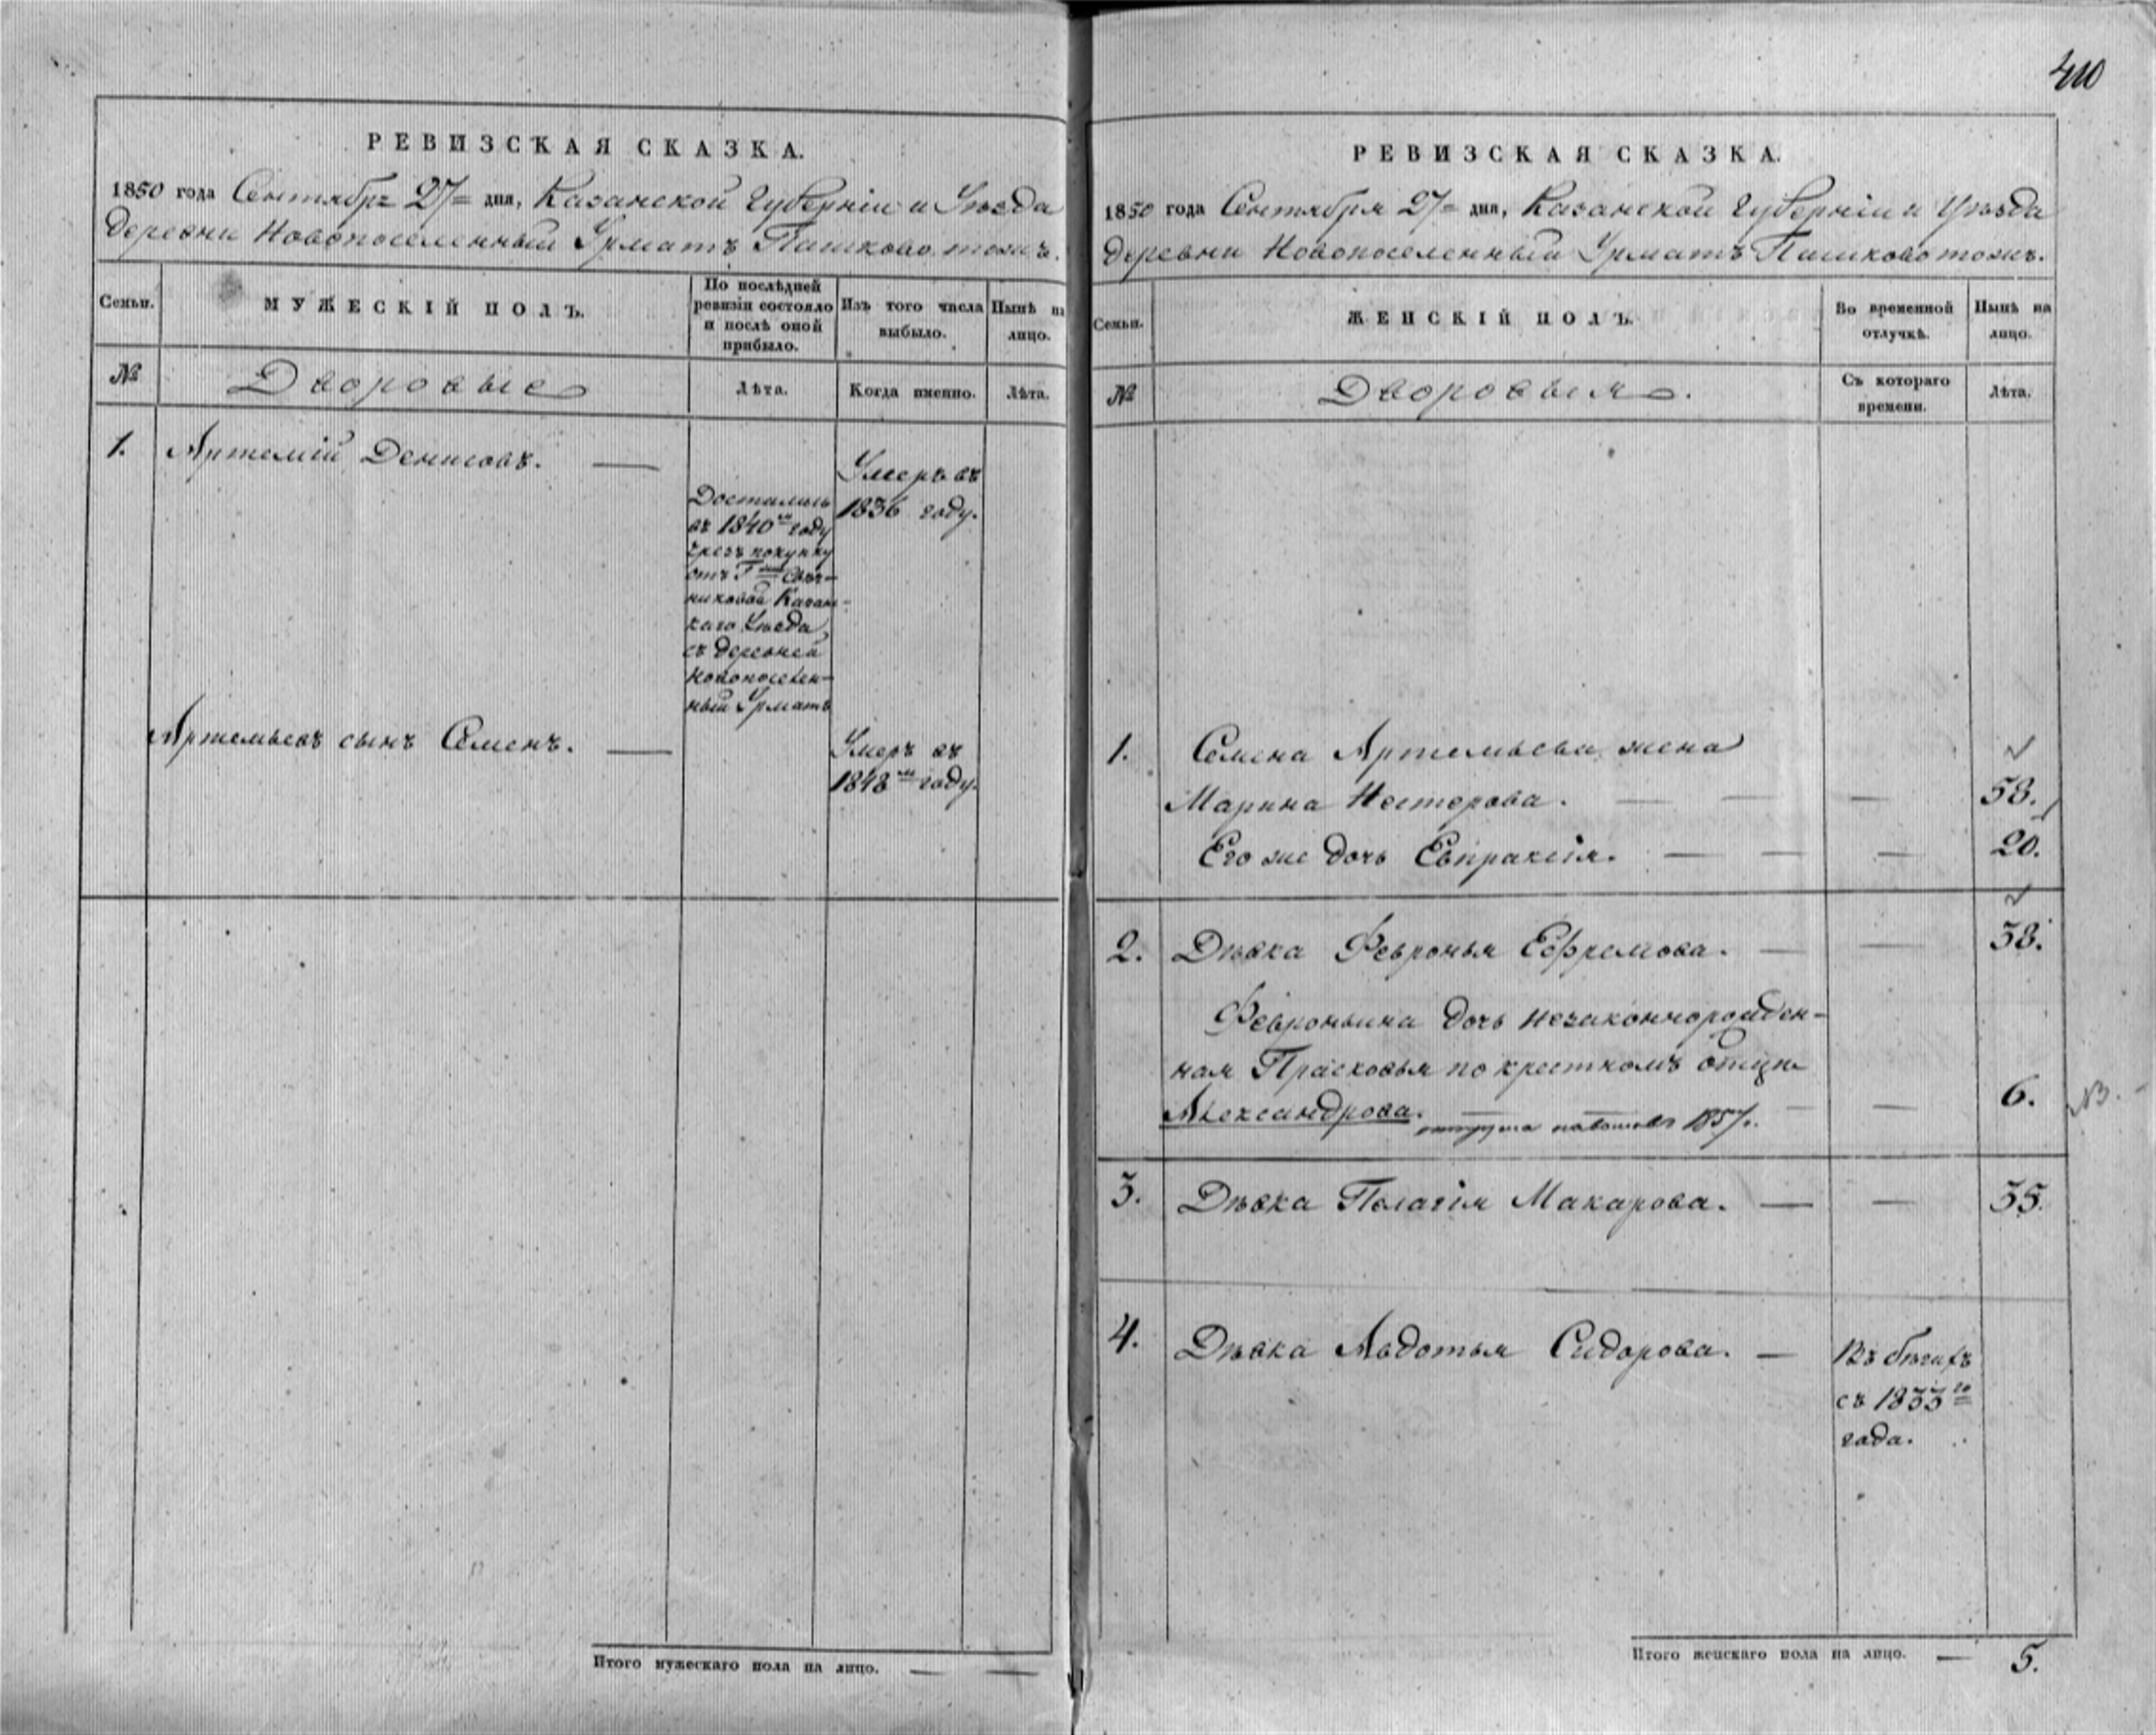 410
РЕВИЗСКАЯ СКАЗКА.
1850 года Сентября 27 дня, Казанской Губерніи и Уѣзда
Деревни Новопоселенный Урматъ Пашково тожъ.
Семьи.
МУЖЕСКІЙ ПОЛЪ.
По послѣдней
ревизіи состояло
и послѣ оной
прибыло.
Изъ того числа
выбыло.
Нынѣ на
лицо.
№
Дворовые
Лѣта.
Когда именно.
Лѣта.
1.
Артемій Денисовъ. —
Умеръ въ
1836 году.
Достались
въ 1840 м году
чрезъ покупку
отъ Г
никовой Казан-
скаго Уѣзда
съ деревней
Новопоселен-
ный Урматъ
Артемьевъ сынъ Семенъ. —
Умеръ въ
1848 м году.
Итого мужескаго пола на лицо. — —
РЕВИЗСКАЯ СКАЗКА.
1850 года Сентября 27 дня, Казанской Губерніи и Уѣзда
Деревни Новопоселенный Урматъ Пашково тожъ.
Семьи.
ЖЕНСКІЙ ПОЛЪ.
Во временной
отлучкѣ.
Нынѣ на
лицо.
№
Дворовыя.
Съ котораго
времени.
Лѣта.
1.
Семена Артемьева жена
Марина Нестерова. — — — 58.
Его же дочь Евпраксія. — — — 20.
2. Дѣвка Февронья Ефремова. — — 38.
Февроньина дочь незаконнорожден-
ная Прасковья по крестномъ отцѣ
Александрова. — — — — 6. NB.
1857г.
3. Дѣвка Пелагія Макарова. — — 35.
4. Дѣвка Авдотья Сидорова. — Въ бѣгахъ
съ 1833 го
года.
Итого женскаго пола на лицо. — 5.